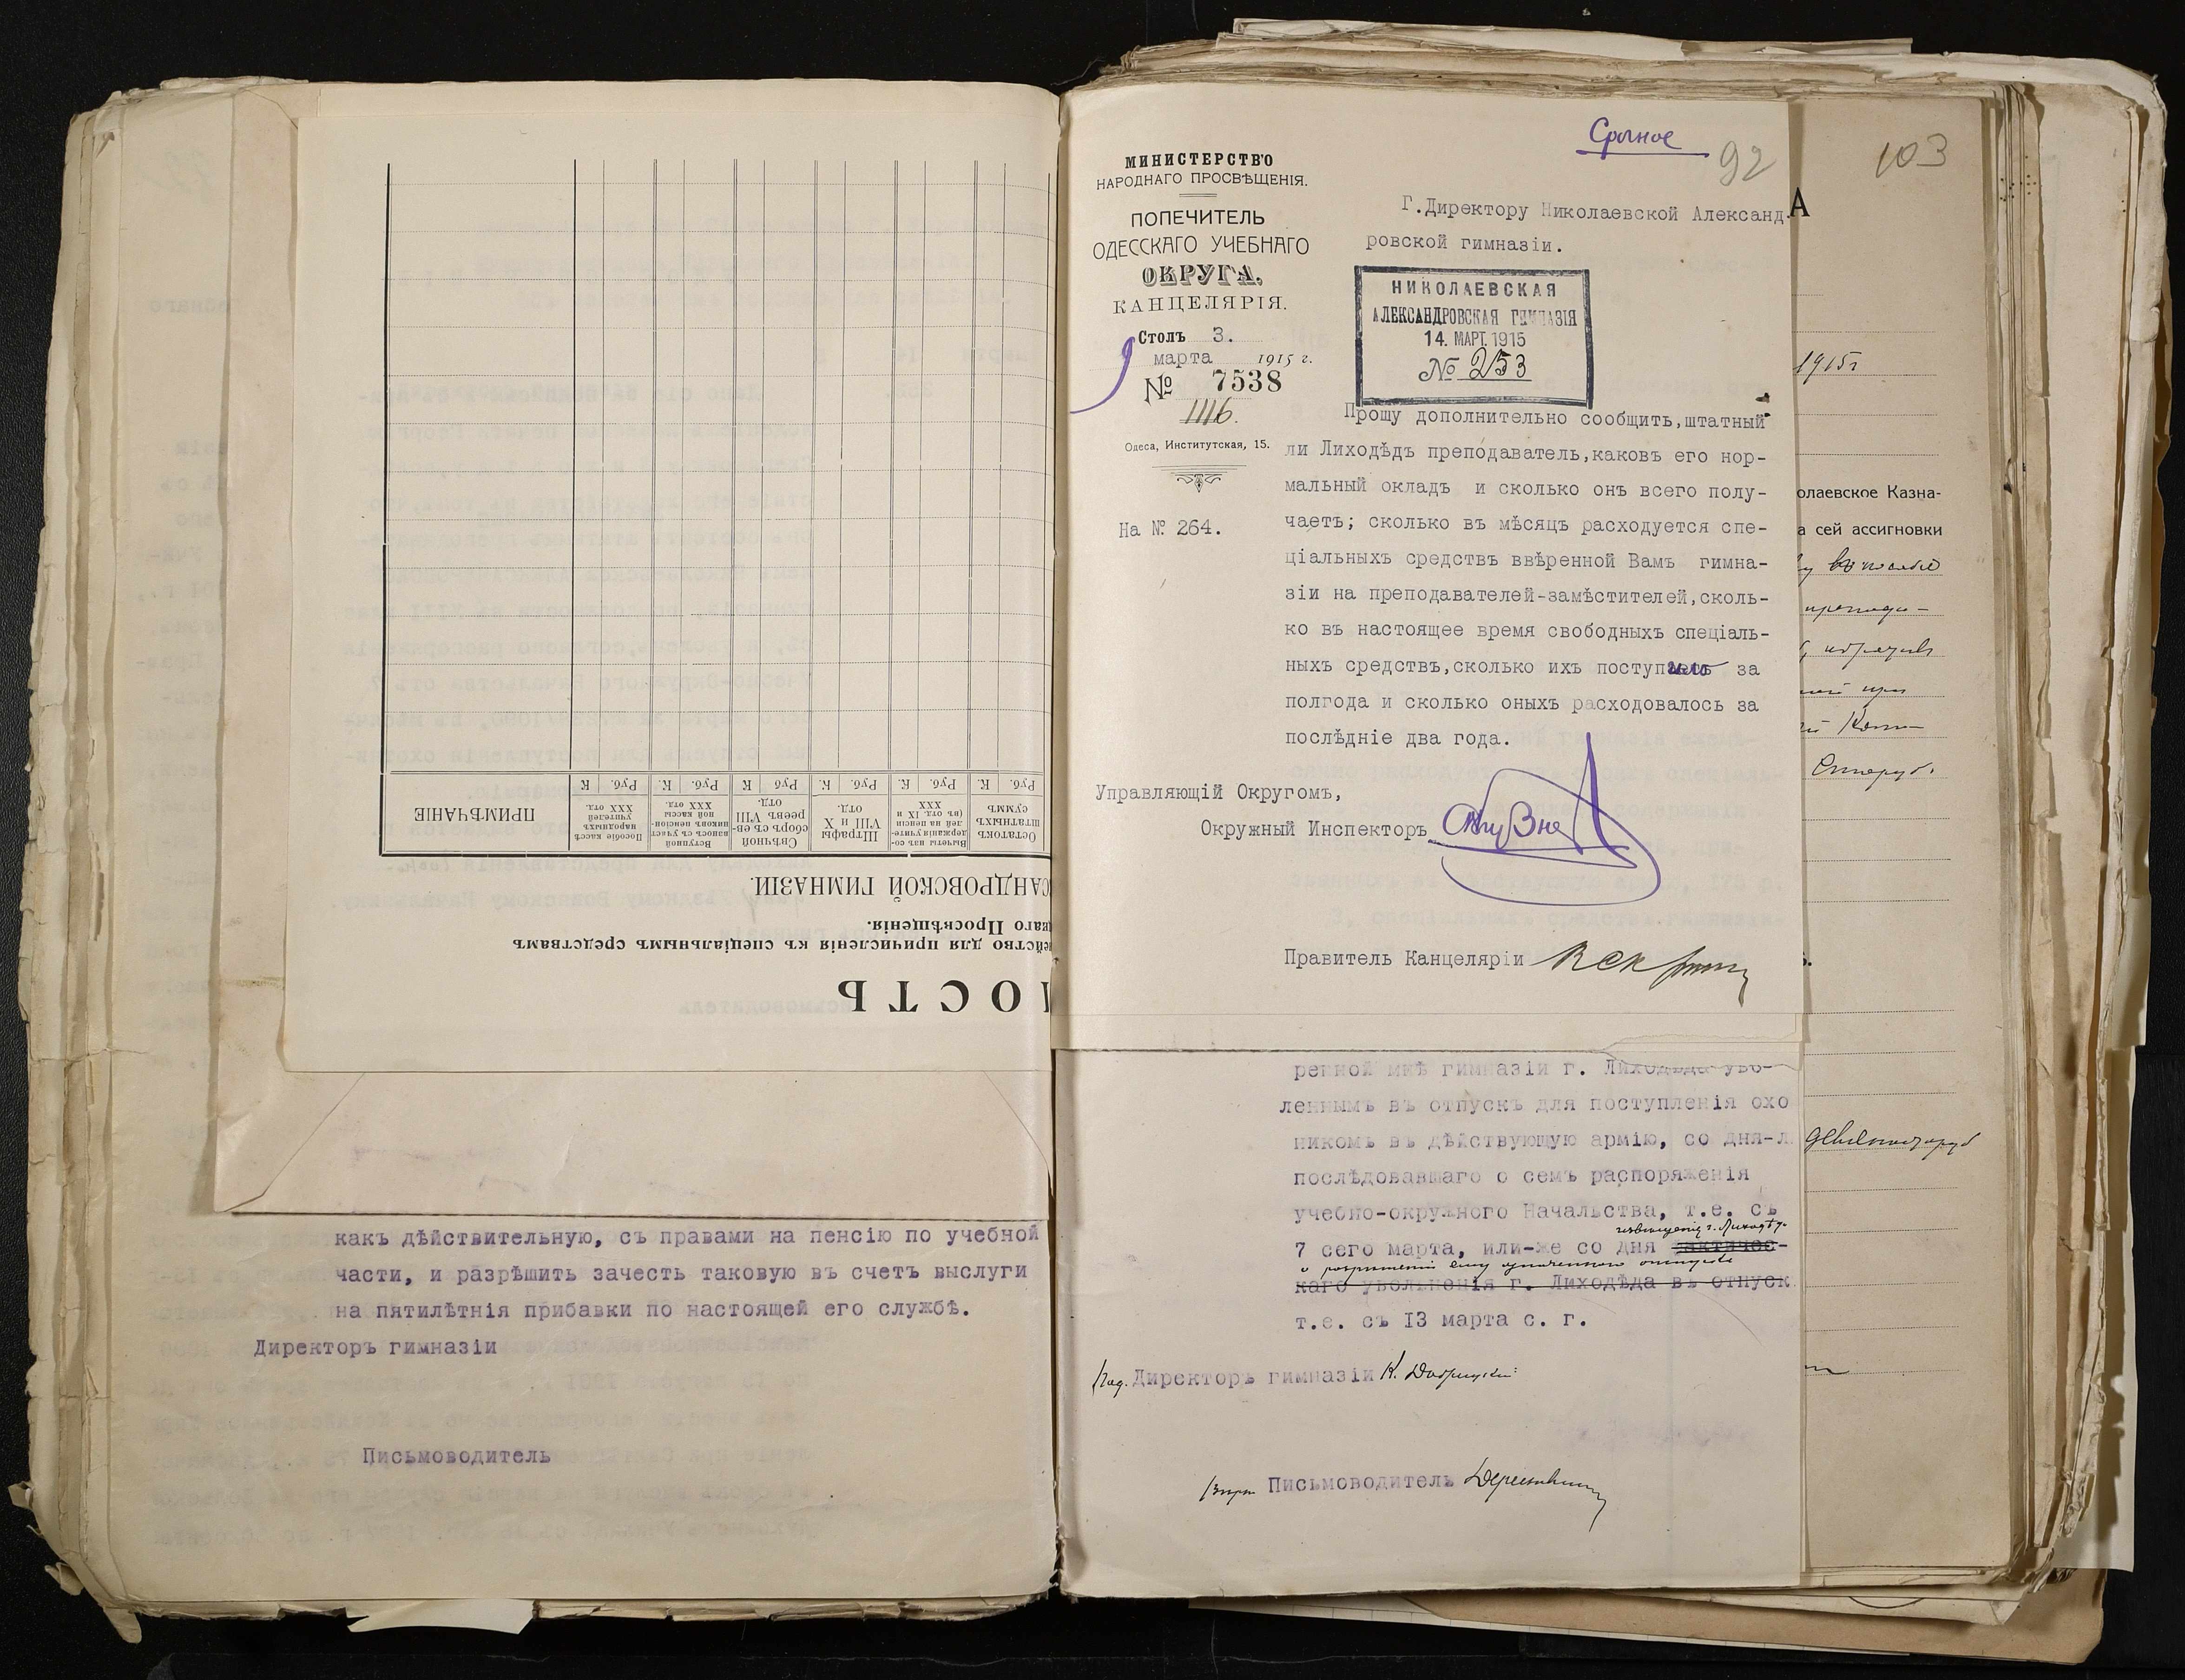 ПРИМѢЧАНІЕ
Пособіе кассѣ народныхъ учителей XXX отд.
Руб. К
Вступной взносъ съ участниковъ пенсіонной кассы XXX отд.
Руб. К
Свѣчной сборъ съ евреевъ VIII отд.
Руб. К
Штрафы VIII и X отд.
Руб. К.
Вычеты изъ содержанія учителей на пенсіи (въ отд. IX и XXX
Руб. К
Остатокъ штатныхъ суммъ
Руб. К
САНДРОВСКОЙ ГИМНАЗІИ.
наго Просвѣщенія.
ейство для причисленія къ спеціальнымъ средствамъ
ОСТЬ
какъ дѣйствительную, съ правами на пенсію по учебной
части, и разрѣшить зачесть таковую въ счетъ выслуги
на пятилѣтнія прибавки по настоящей его службѣ.
Директоръ гимназіи
Письмоводитель
Срочное
92
МИНИСТЕРСТВО
НАРОДНАГО ПРОСВѢЩЕНІЯ.
ПОПЕЧИТЕЛЬ
ОДЕССКАГО УЧЕБНАГО
ОКРУГА.
КАНЦЕЛЯРІЯ.
Столъ 3.
9 марта 1915 г.
№ 7538
1116.
Одеса, Институтская, 15.
На № 264.
Г.Директору Николаевской Александ-
ровской гимназіи.
НИКОЛАЕВСКАЯ
АЛЕКСАНДРОВСКАЯ ГИМНАЗІЯ
14. МАРТ. 1915
№ 253
Прошу дополнительно сообщить,штатный
ли Лиходѣдъ преподаватель,каковъ его нор-
мальный окладъ и сколько онъ всего полу-
чаетъ; сколько въ мѣсяцъ расходуется спе-
ціальныхъ средствъ ввѣренной Вамъ гимна-
зіи на преподавателей-замѣстителей,сколь-
ко въ настоящее время свободныхъ спеціаль-
ныхъ средствъ,сколько ихъ поступило за
полгода и сколько оныхъ расходовалось за
послѣдніе два года.
Управляющій Округомъ,
Окружный Инспекторъ
Правитель Канцеляріи
ренной мнѣ гимназіи г. Лиходѣда уво-
леннымъ въ отпускъ для поступленія охо
никомъ въ дѣйствующую армію, со дня-л
послѣдовавшаго о семъ распоряженія
учебно-окружного Начальства, т.е. съ
извѣщенія г. Лиходѣда
7 сего марта, или-же со дня фактичес-
о разрѣшеніи ему означеннаго отпуска
каго увольненія г. Лиходѣда въ отпуск
т.е. съ 13 марта с. г.
Под. Директоръ гимназіи К.
Письмоводитель
103
А
1915г
олаевское Казна-
а сей ассигновки